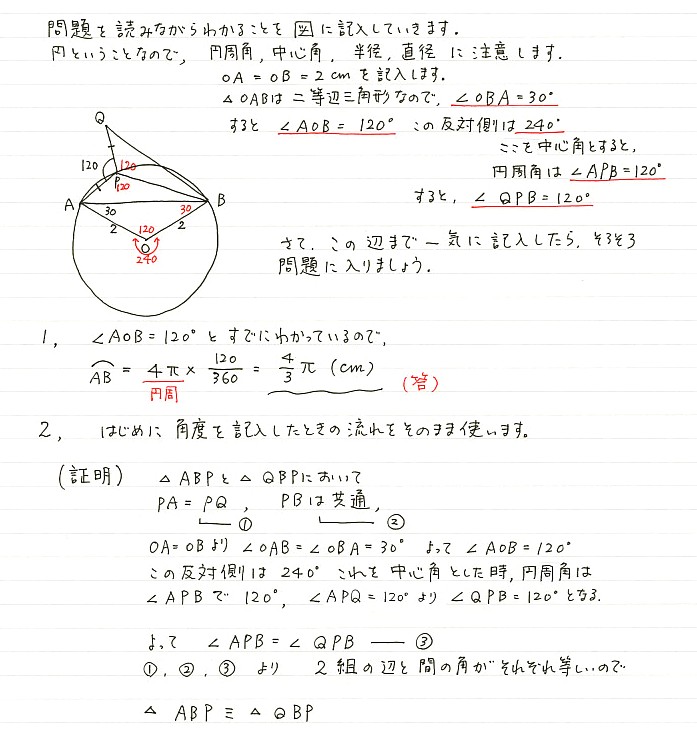 問題を読みながらわかることを図に記入していきます.
円ということなので, 円周角, 中心角, 半径, 直径に注意します.
OA = OB = 2cm を記入します.
△OABは二等辺三角形なので, ∠OBA = 30°
すると ∠AOB = 120° この反対側は 240°
ここを中心角とすると,
円周角は ∠APB = 120°
すると, ∠QPB = 120°
Q
120
120
P
120
A
B
30
30
2
120
2
O
240
さて, この辺まで一気に記入したら, そろそろ
問題に入りましょう.
1, ∠AOB = 120° とすでにわかっているので,
⌒AB = 4π × 120/360 = 4/3 π (cm)
円周
(答)
2, はじめに角度を記入したときの流れをそのまま使います。
(証明) △ABPと△QBPにおいて
PA = PQ, PBは共通,
① ②
OA = OB より ∠OAB = ∠OBA = 30° よって ∠AOB = 120°
この反対側は 240° これを中心角とした時, 円周角は
∠APB で 120°, ∠APQ = 120° より ∠QPB = 120° となる.
よって ∠APB = ∠QPB ― ③
①, ②, ③ より 2組の辺と間の角がそれぞれ等しいので
△ ABP ≡ △ QBP